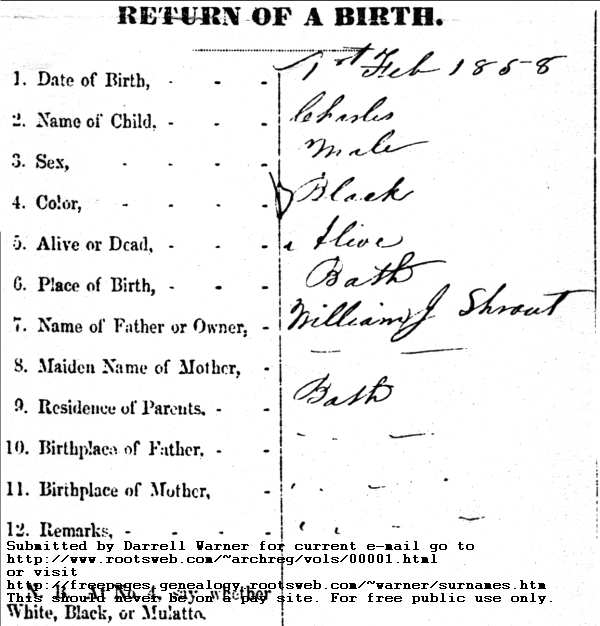 RETURN OF A BIRTH.
1. Date of Birth, - - - 1st Feb 1858
2. Name of Child, - - - Charles
3. Sex, - - - - Male
4. Color, - - - - Black
5. Alive or Dead, - - - Alive
6. Place of Birth, - - - Bath
7. Name of Father or Owner, - William J Shrout
8. Maiden Name of Mother, - — —
9. Residence of Parents, - - Bath
10. Birthplace of Father, - -
11. Birthplace of Mother, -
12. Remarks, - - - -
Submitted by Darrell Warner for current e-mail go to
http://www.rootsweb.com/~archreg/vols/00001.html
or visit
http://freepages.genealogy.rootsweb.com/~warner/surnames.htm
N. B. At No. 4, say whether
This should never be on a pay site. For free public use only.
White, Black, or Mulatto.